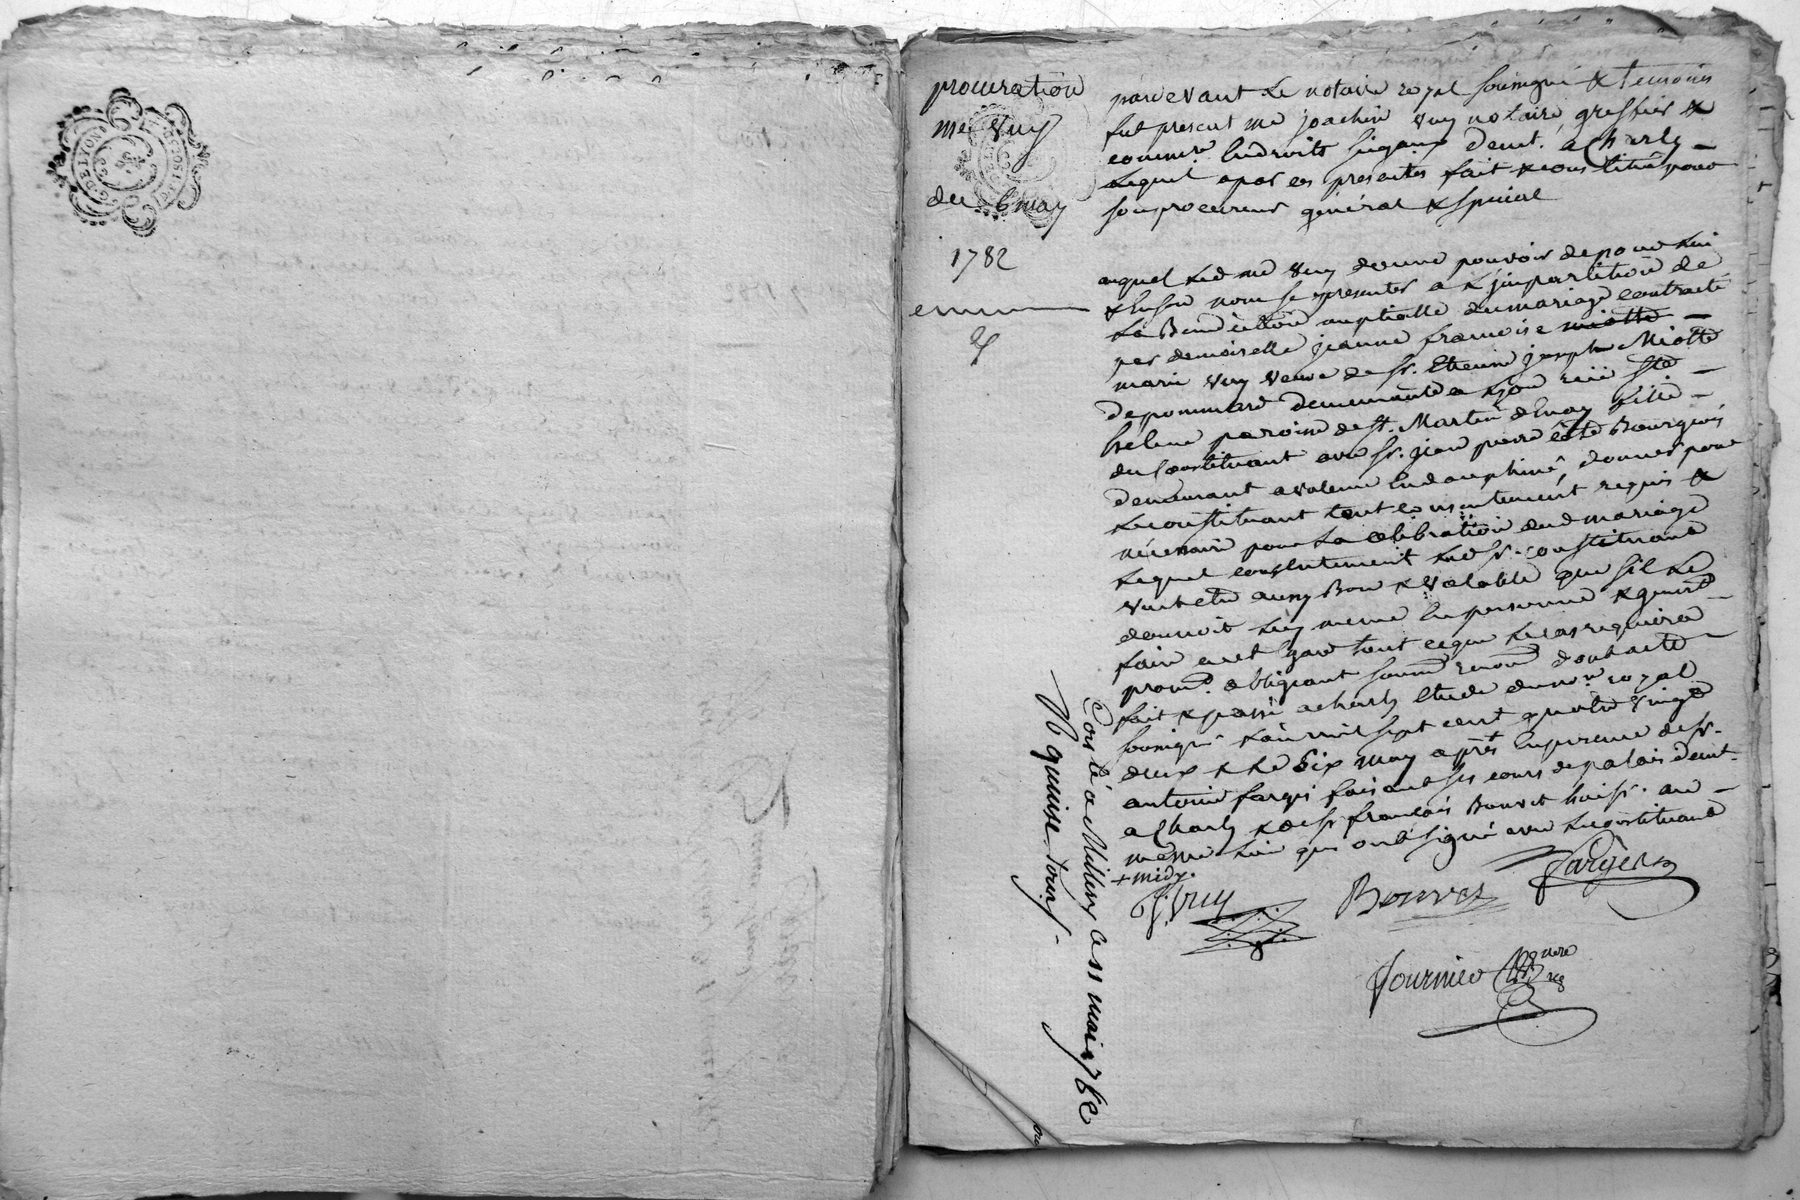 G. DE LYON
procuration
me Vuy
du 6 may
1782
pardevant le notaire royal soussigné & temoins
fut present me joachin Vuy notaire greffier &
commre. en droits demt. a Charly
lequel a par ces presentes fait & constitué pour
son procureur général & special
auquel led me Vuy donne pouvoir de pour lui
& en son nom se presenter a l'impartition de
la Benediction nuptialle du mariage contracté
par demoiselle jeanne francoise miotte
marie Vuy veuve de sr. Etienne joseph Miotte
depommard demeurante a Lyon rüe ste
helene paroisse de st. Martin d'Enay fille
du Constituant avec sr. jean pierre Bourgeois
demeurant a valence en dauphiné, donner pour
le constituant tout consentement requis &
nécessaire pour la celebration dud mariage
lequel consentement led sr. constituant
veut etre aussy Bon & valable que sil le
donnoit luy meme en personne & gnrt
faire tout ce que le cas requiera
promt. obligeant soumt. renont. dont acte
fait & passé a charly etude du nre royal
soussigné l'an mil sept cent quatre vingt
deux & le six may après en presence de sr.
antoine farges faisant ses cours de palais demt.
a Charly & de sr francois Bouvet huissr. au
meme lieu qui ont signé avec le constituant
+ midy.
J. Vuy
Bouvet
farges
fournier nore
Conlé a Millery ce 11 mai 1782
R quinze sous